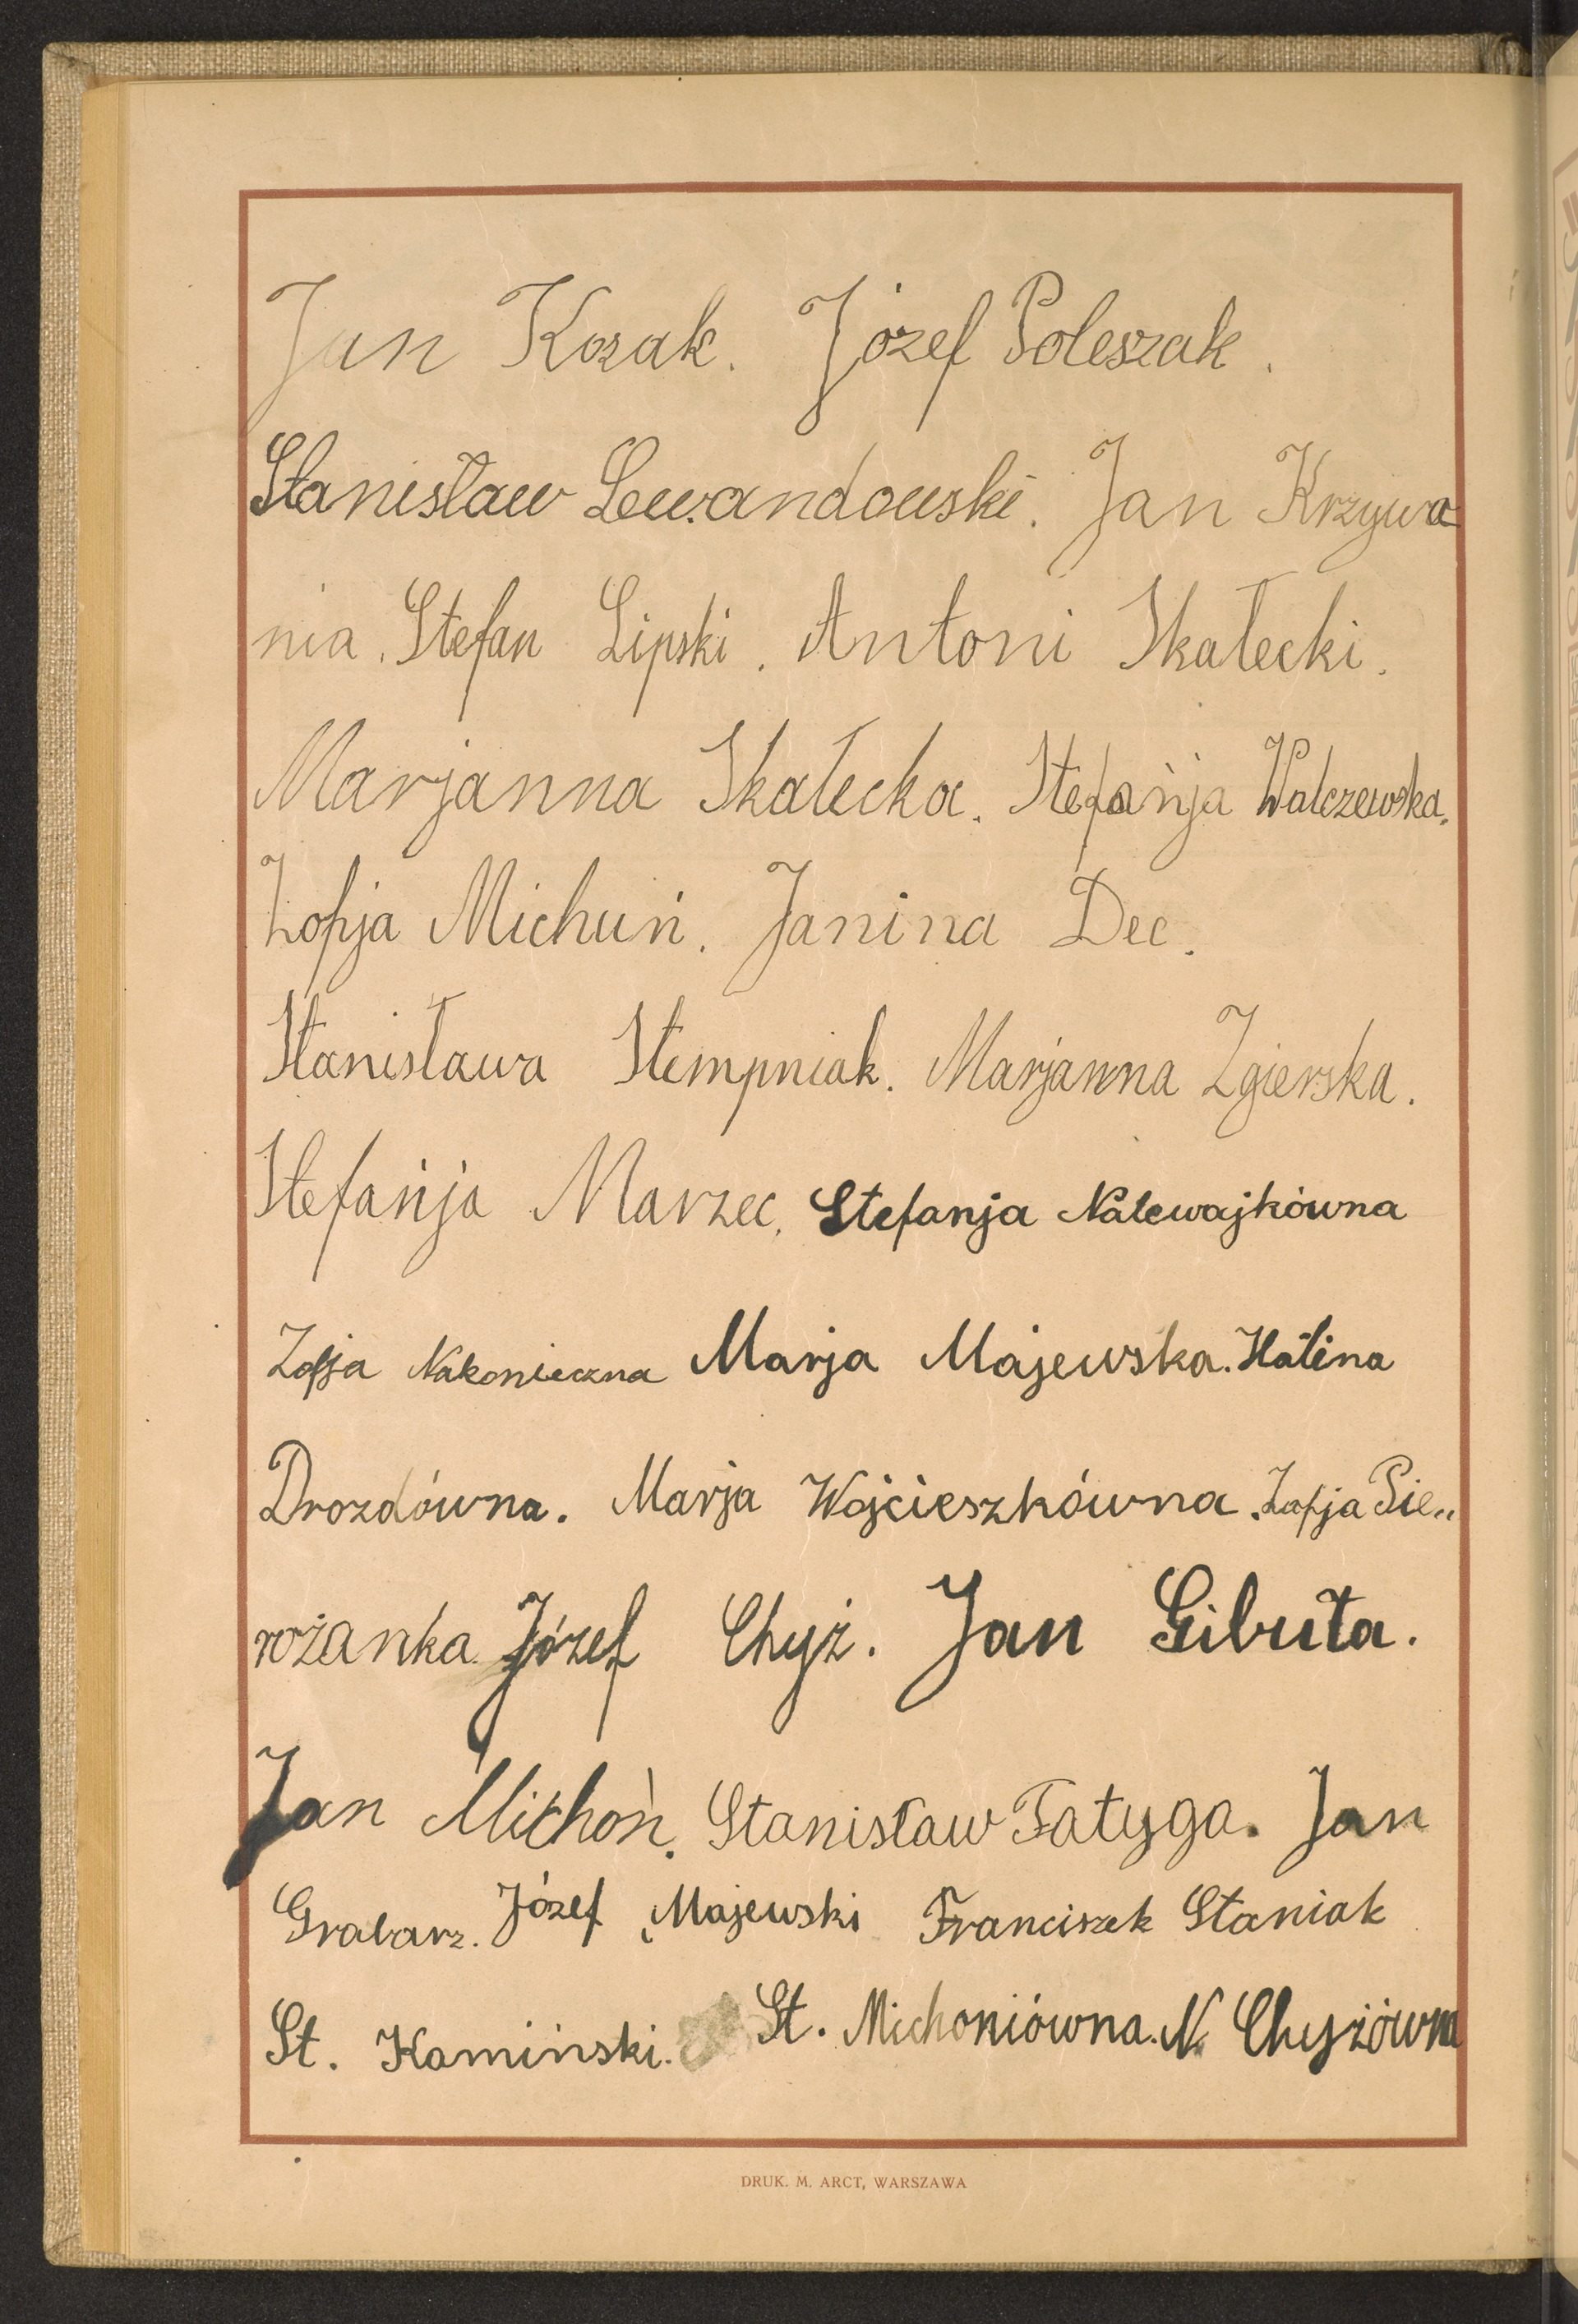 Jan Kozak. Józef Poleszak.
Stanisław Lewandowski. Jan Krzywa
nia. Stefan Lipski. Antoni Skałecki.
Marjanna Skałecka. Stefańja Walczewska.
Zofja Michuń. Janina Dec.
Stanisława Stempniak. Marjanna Zgierska.
Stefańja Marzec. Stefanja Nalewajkówna
Zofja Nakonieczna Marja Majewska. Halina
Drozdówna. Marja Wojcieszkówna. Zofja Sie„
rożanka. Józef Chyż. Jan Gibuła.
Jan Michoń. Stanisław Fatyga. Jan
Grabarz. Józef Majewski Franciszek Staniak
St. Kamiński. St. Michoniówna. N. Chyżówna
DRUK. M. ARCT, WARSZAWA